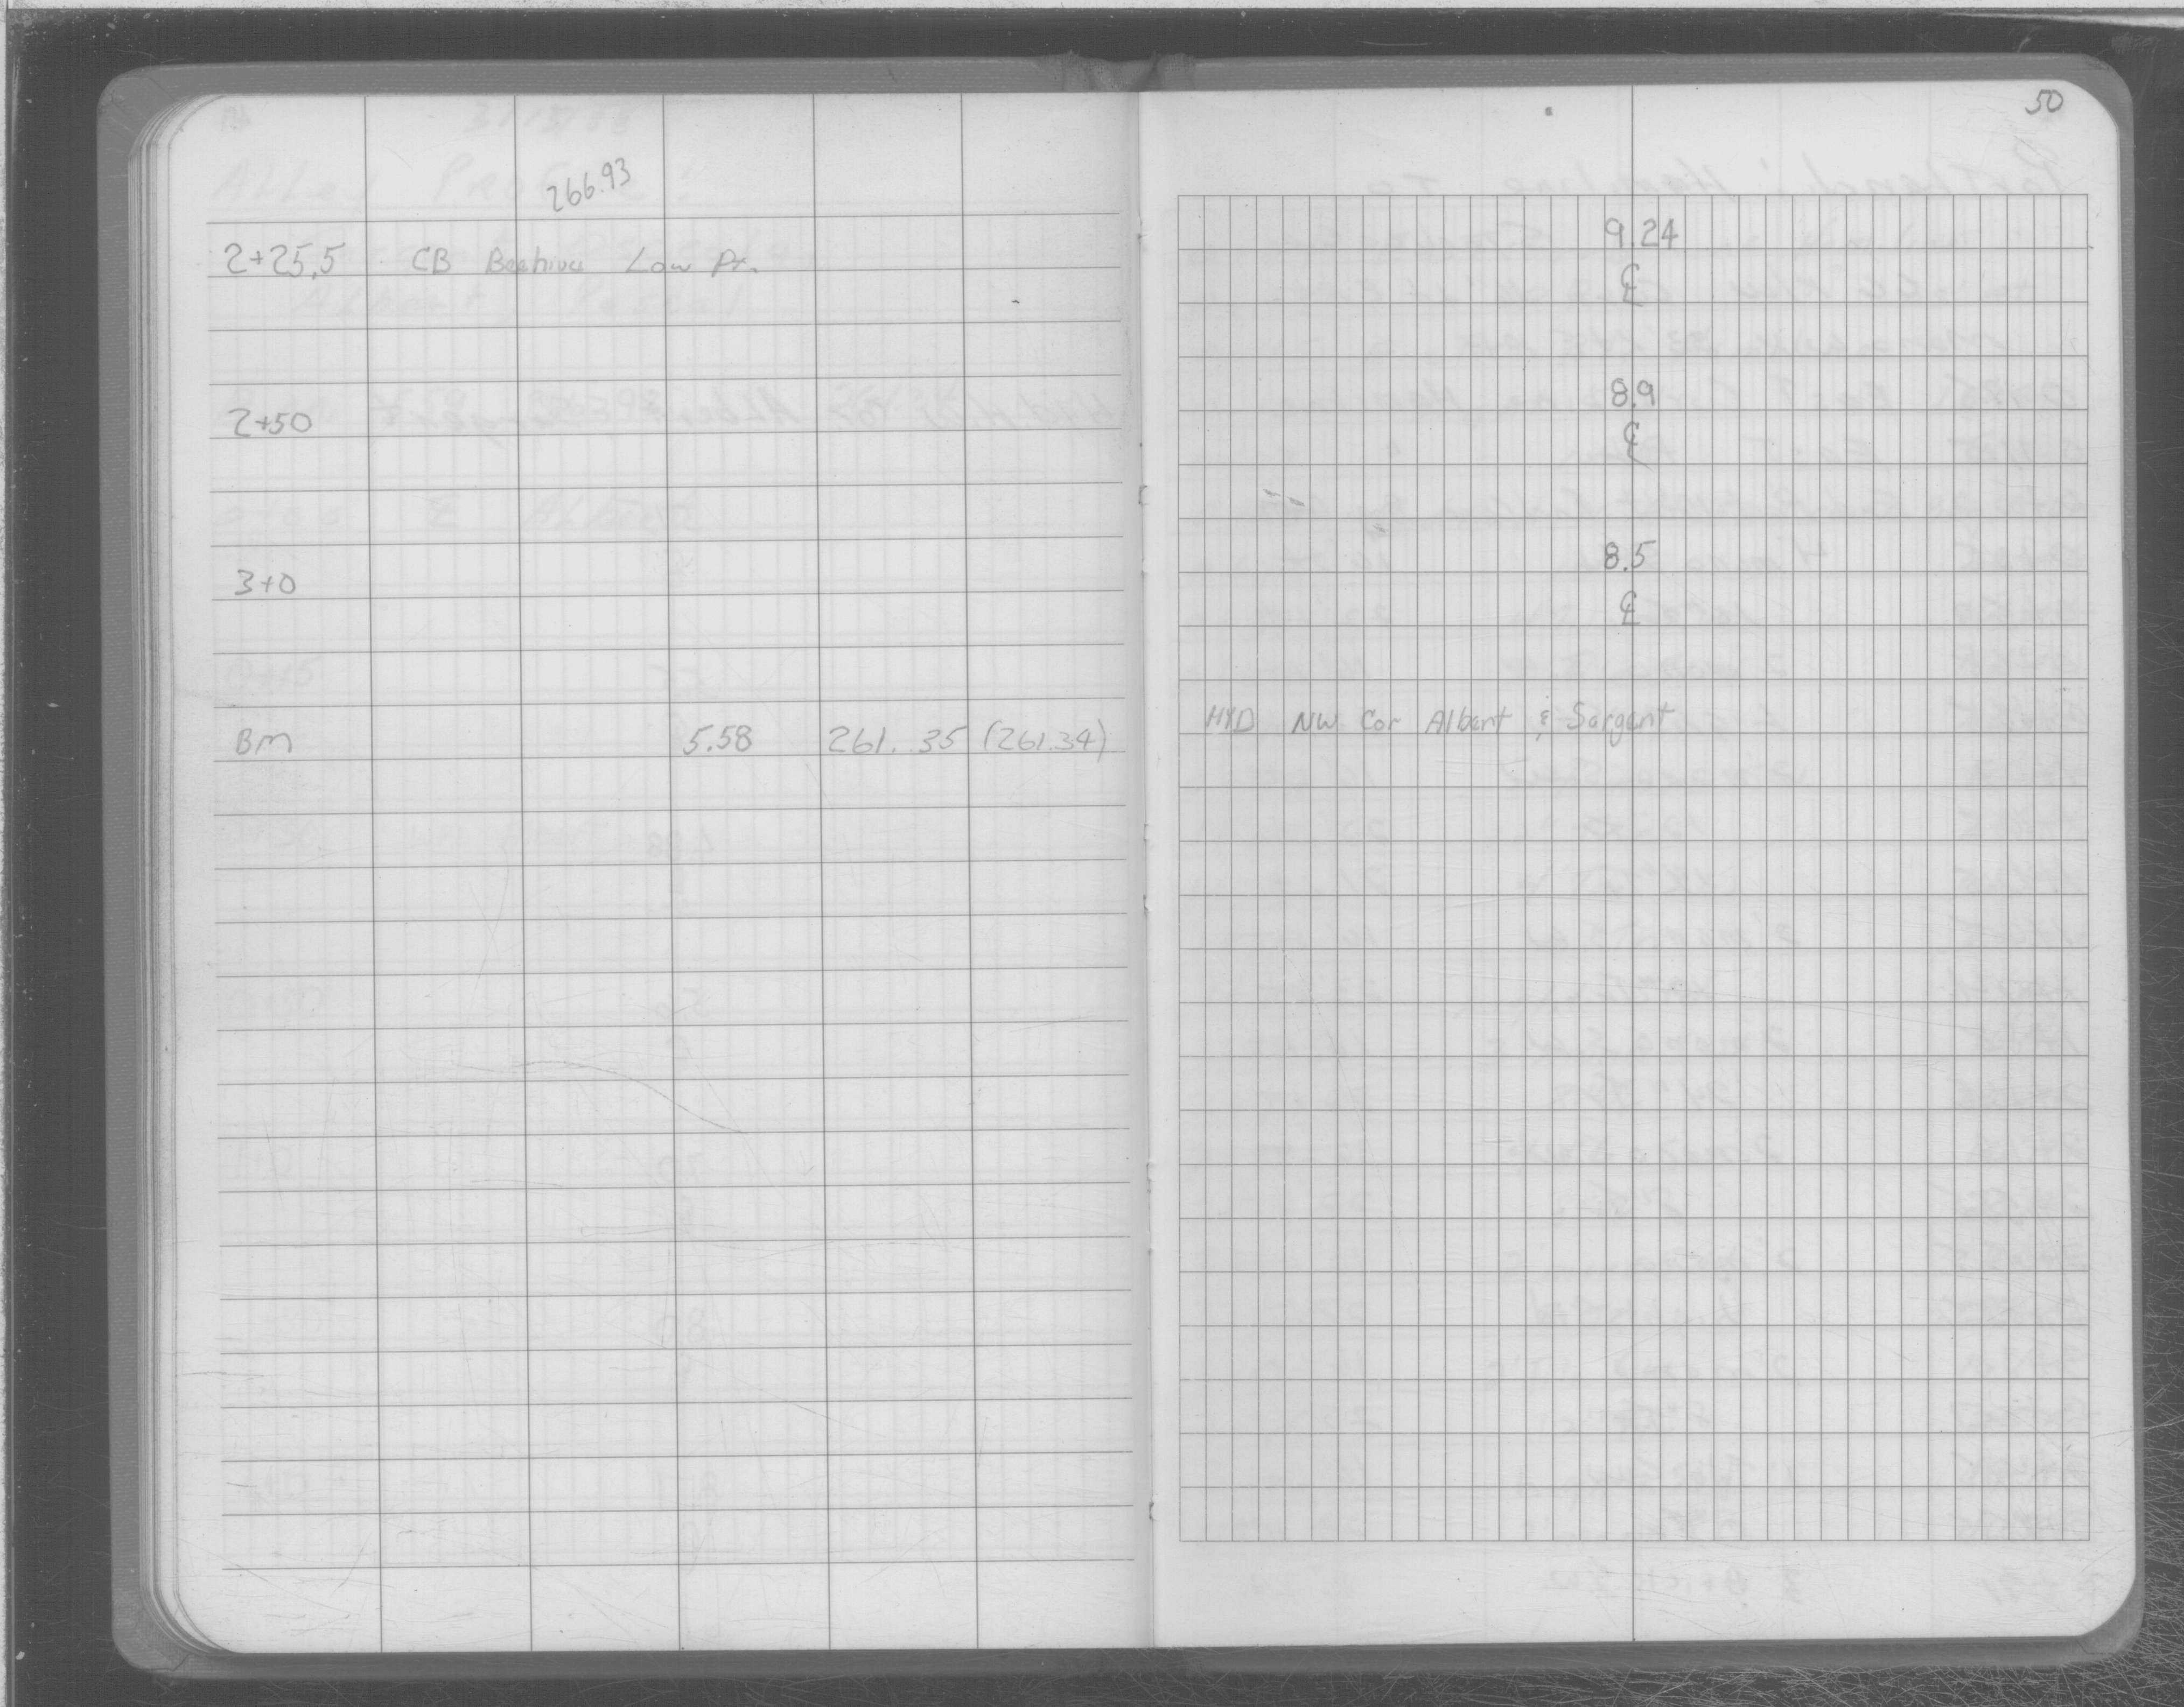 50
266.93
2+25.5 CB Beehive Low Pt. 9.24
℄
2+50 8.9
℄
3+0 8.5
℄
BM 5.58 261.35 (261.34) HYD NW Cor Albert & Sargent